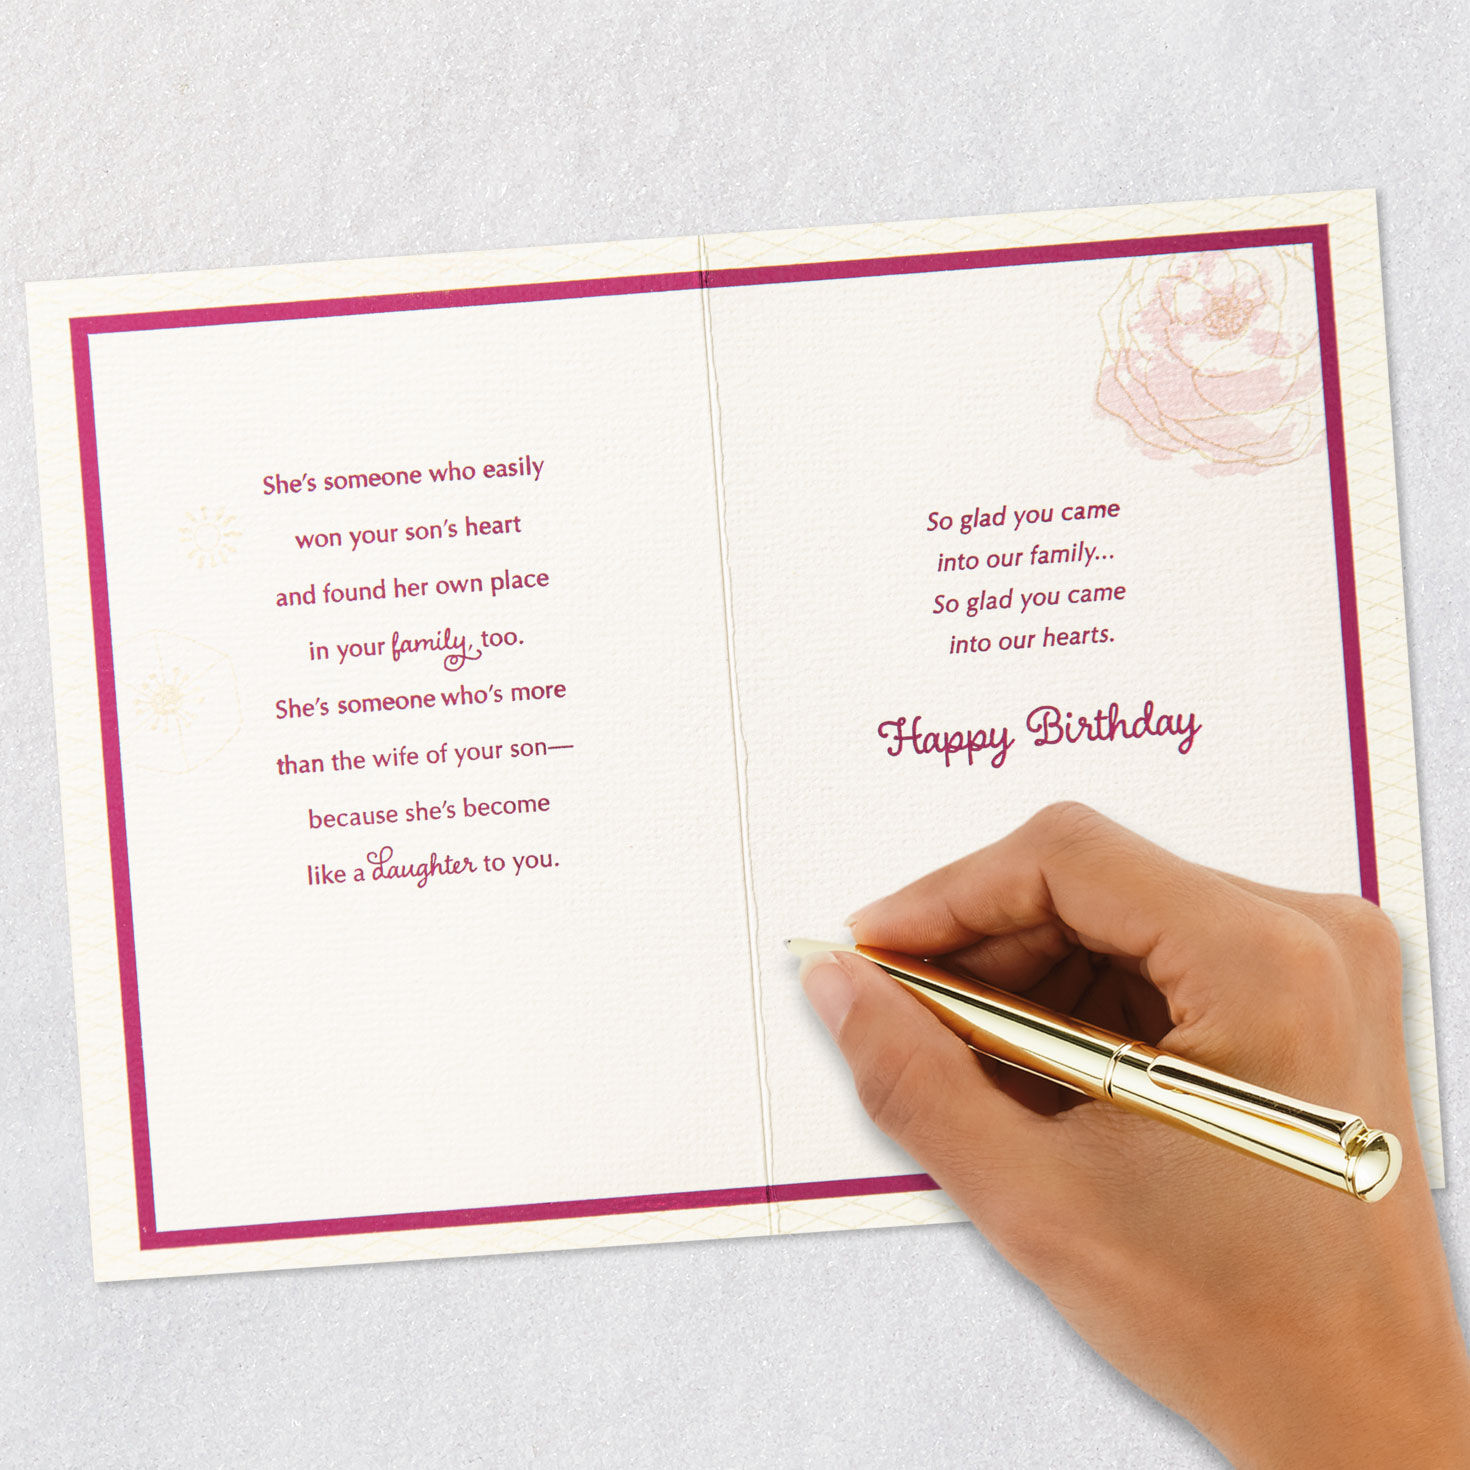 She's someone who easily
won your son's heart
and found her own place
in your family, too.
She's someone who's more
than the wife of your son—
because she's become
like a daughter to you.
So glad you came
into our family...
So glad you came
into our hearts.
Happy Birthday